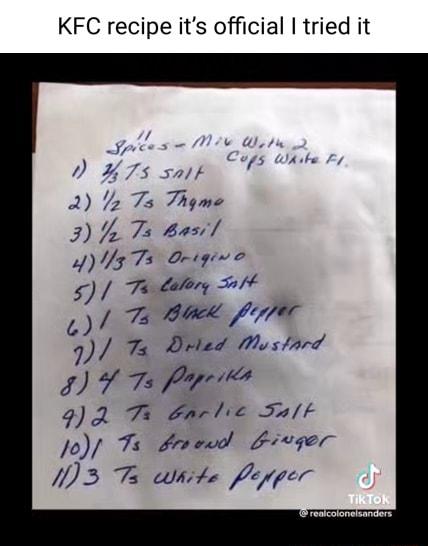 KFC recipe it's official I tried it
11
Spices - Mix With 2
Cups White Fl.
1) 2/3 Ts Salt
2) 1/2 Ts Thyme
3) 1/2 Ts Basil
4) 1/3 Ts Origino
5) 1 Ts Celory Salt
6) 1 Ts Black Pepper
7) 1 Ts Dried Mustard
8) 4 Ts Paprika
9) 2 Ts Garlic Salt
10) 1 Ts Ground Ginger
11) 3 Ts White Pepper
TikTok
@realcolonelsanders